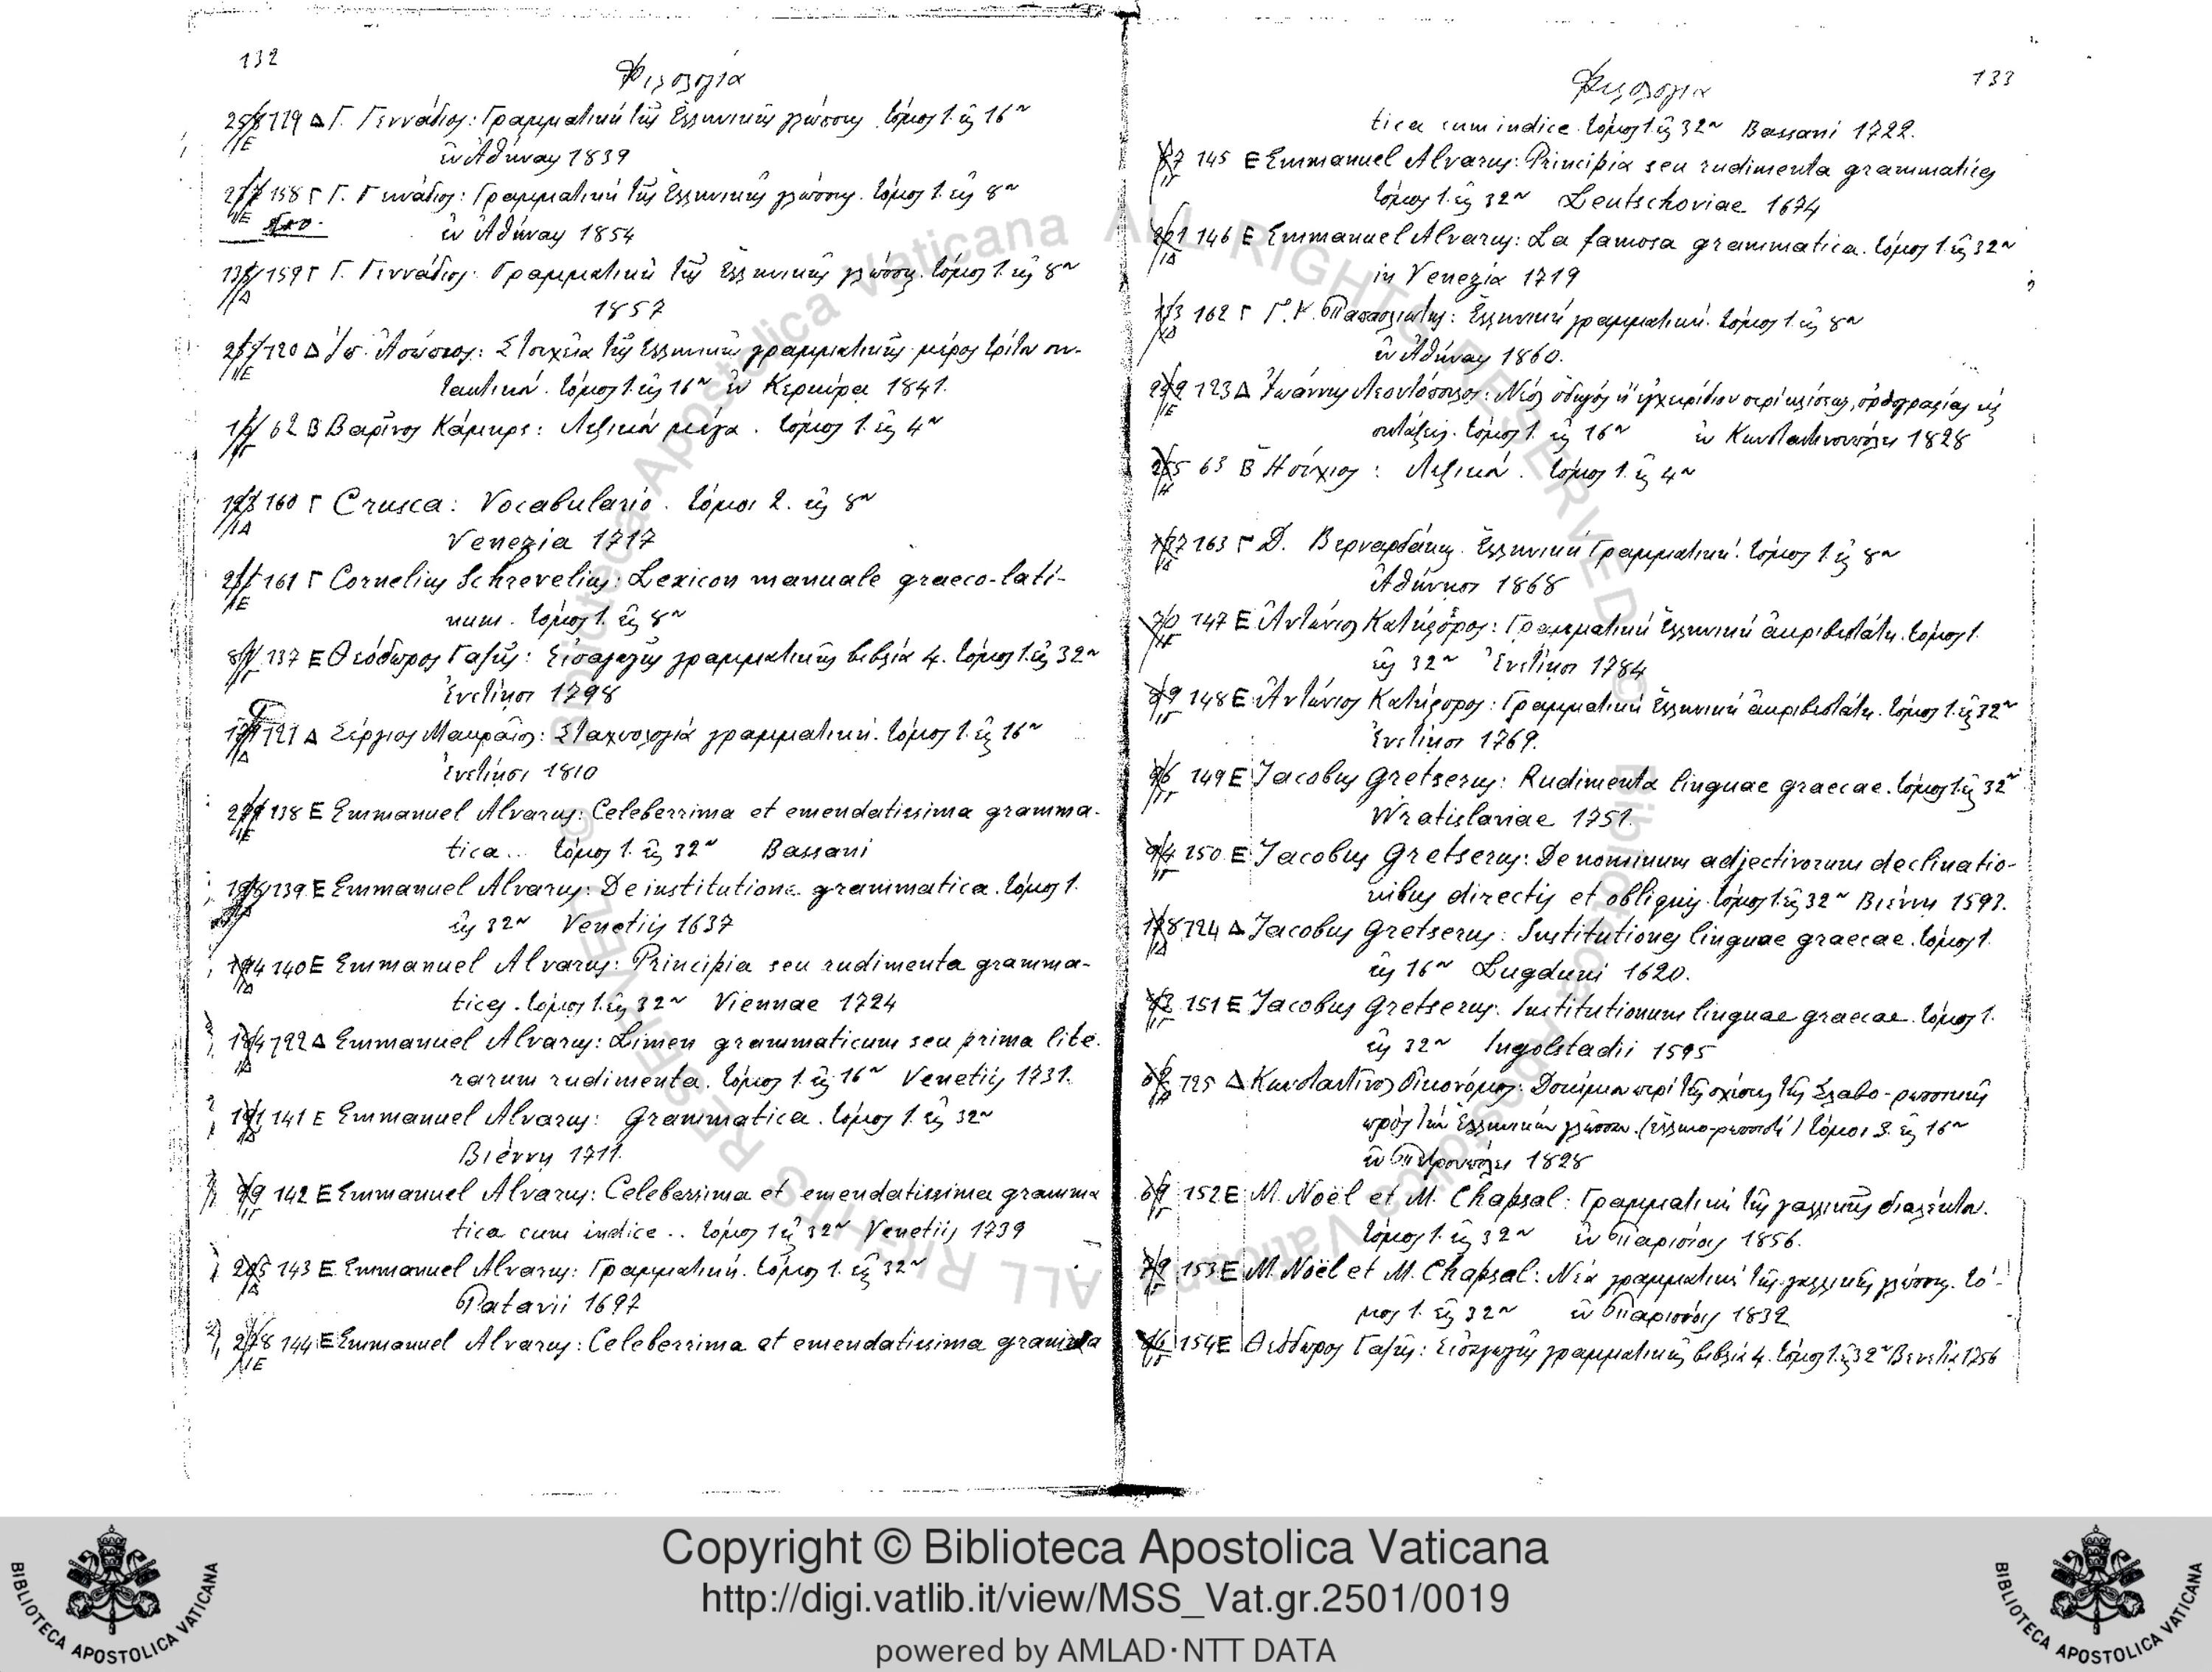 132
Φιλολογία
119 Δ Γ. Γεννάδιος: Γραμματική τῆς Ἑλληνικῆς γλώσσης τόμος 1. εἰς 16ον
ἐν Ἀθήναις 1839
158 Γ Γ. Γεννάδιος: Γραμματική τῆς Ἑλληνικῆς γλώσσης. τόμος 1. εἰς 8ον
ἐν Ἀθήναις 1854
159 Γ Γ. Γεννάδιος: Γραμματική τῆς Ἑλληνικῆς γλώσσης. τόμος 1. εἰς 8ον
1857
120 Δ Ἀσώπιος: Στοιχεῖα τῆς Ἑλληνικῆς γραμματικῆς μέρος τρίτον συν-
τακτικόν. τόμος 1. εἰς 16ον ἐν Κερκύρᾳ 1841.
62 Β Βαρῖνος Κάμηρς: Λεξικόν μέγα. τόμος 1. εἰς 4ον
160 Γ Crusca: Vocabulario. τόμοι 2. εἰς 8ον
Venezia 1717
161 Γ Cornelius Schrevelius: Lexicon manuale graeco-lati-
num. τόμος 1. εἰς 8ον
137 Ε Θεόδωρος Γαζῆς: Εἰσαγωγῆς γραμματικῆς βιβλία 4. τόμος 1. εἰς 32ον
Ἐνετίησι 1798
121 Δ Σέργιος Μακραῖος: Σταχυολογία γραμματική. τόμος 1. εἰς 16ον
Ἐνετίησι 1810
138 Ε Emmanuel Alvarus: Celeberrima et emendatissima gramma-
tica.. τόμος 1. εἰς 32ον Bassani
139 Ε Emmanuel Alvarus: De institutione grammatica. τόμος 1.
εἰς 32ον Venetiis 1637
140 Ε Emmanuel Alvarus: Principia seu rudimenta gramma-
tices. τόμος 1. εἰς 32ον Viennae 1724
122 Δ Emmanuel Alvarus: Limen grammaticum seu prima lite-
rarum rudimenta. τόμος 1. εἰς 16ον Venetiis 1731.
141 Ε Emmanuel Alvarus: Grammatica. τόμος 1. εἰς 32ον
Βιέννη 1711.
142 Ε Emmanuel Alvarus: Celeberrima et emendatissima gramma
tica cum indice.. τόμος 1 εἰς 32ον Venetiis 1739
143 Ε Emmanuel Alvarus: Γραμματική. τόμος 1. εἰς 32ον
Patavii 1697
144 Ε Emmanuel Alvarus: Celeberrima et emendatissima gramma
133
Φιλολογία
tica cum indice. τόμος 1 εἰς 32ον Bassani 1722.
145 Ε Emmanuel Alvarus: Principia seu rudimenta grammatices
τόμος 1. εἰς 32ον Leutschoviae 1674
146 Ε Emmanuel Alvarus: La famosa grammatica. τόμος 1. εἰς 32ον
in Venezia 1719
162 Γ Παπασλιώτης: Ἑλληνική γραμματική. τόμος 1. εἰς 8ον
ἐν Ἀθήναις 1860.
123 Δ Ἰωάννης Λεοντόπουλος: Νέος ὁδηγός ἤ ἐγχειρίδιον περί κλίσεως, ὀρθογραφίας καί
συντάξεως. τόμος 1. εἰς 16ον ἐν Κωνσταντινουπόλει 1828
63 Β Ἡσύχιος: Λεξικόν. τόμος 1. εἰς 4ον
163 Γ Δ. Βερναρδάκης. Ἑλληνική Γραμματική. τόμος 1. εἰς 8ον
Ἀθήνησι 1868
147 Ε Ἀντώνιος Κατήφορος: Γραμματική Ἑλληνική ἀκριβεστάτη. τόμος 1.
εἰς 32ον Ἐνετίησι 1784
148 Ε Ἀντώνιος Κατήφορος: Γραμματική Ἑλληνική ἀκριβεστάτη. τόμος 1. εἰς 32ον
Ἐνετίησι 1769.
149 Ε Jacobus Gretserus: Rudimenta linguae graecae. τόμος 1. εἰς 32ον
Wratislaviae 1751.
150 Ε Jacobus Gretserus: De nominum adjectivorum declinatio-
nibus directis et obliquis. τόμος 1. εἰς 32ον Βιέννη 1593.
124 Δ Jacobus Gretserus: Institutiones linguae graecae. τόμος 1.
εἰς 16ον Lugduni 1620.
151 Ε Jacobus Gretserus. Institutionum linguae graecae. τόμος 1.
εἰς 32ον Ingolstadii 1595
125 Δ Κωνσταντῖνος Οἰκονόμος: Δοκίμιον περί τῆς σχέσεως τῆς Σλαβο-ρωσσικῆς
πρός τήν Ἑλληνικήν γλῶσσαν. τόμοι 3. εἰς 16ον
ἐν Πετρουπόλει 1828
152 Ε M. Noël et M. Chapsal: Γραμματική τῆς γαλλικῆς διαλέκτου.
τόμος 1. εἰς 32ον ἐν Παρισίοις 1856.
153 Ε M. Noël et M. Chapsal: Νέα γραμματική τῆς γαλλικῆς γλώσσης. τό-
μος 1. εἰς 32ον ἐν Παρισίοις 1832
154 Ε Θεόδωρος Γαζῆς: Εἰσαγωγῆς γραμματικῆς βιβλία 4. τόμος 1. εἰς 32ον Βενετία 1756
© Biblioteca Apostolica Vaticana ALL RIGHTS RESERVED
Copyright © Biblioteca Apostolica Vaticana
http://digi.vatlib.it/view/MSS_Vat.gr.2501/0019
powered by AMLAD·NTT DATA
BIBLIOTECA APOSTOLICA VATICANA
BIBLIOTECA APOSTOLICA VATICANA